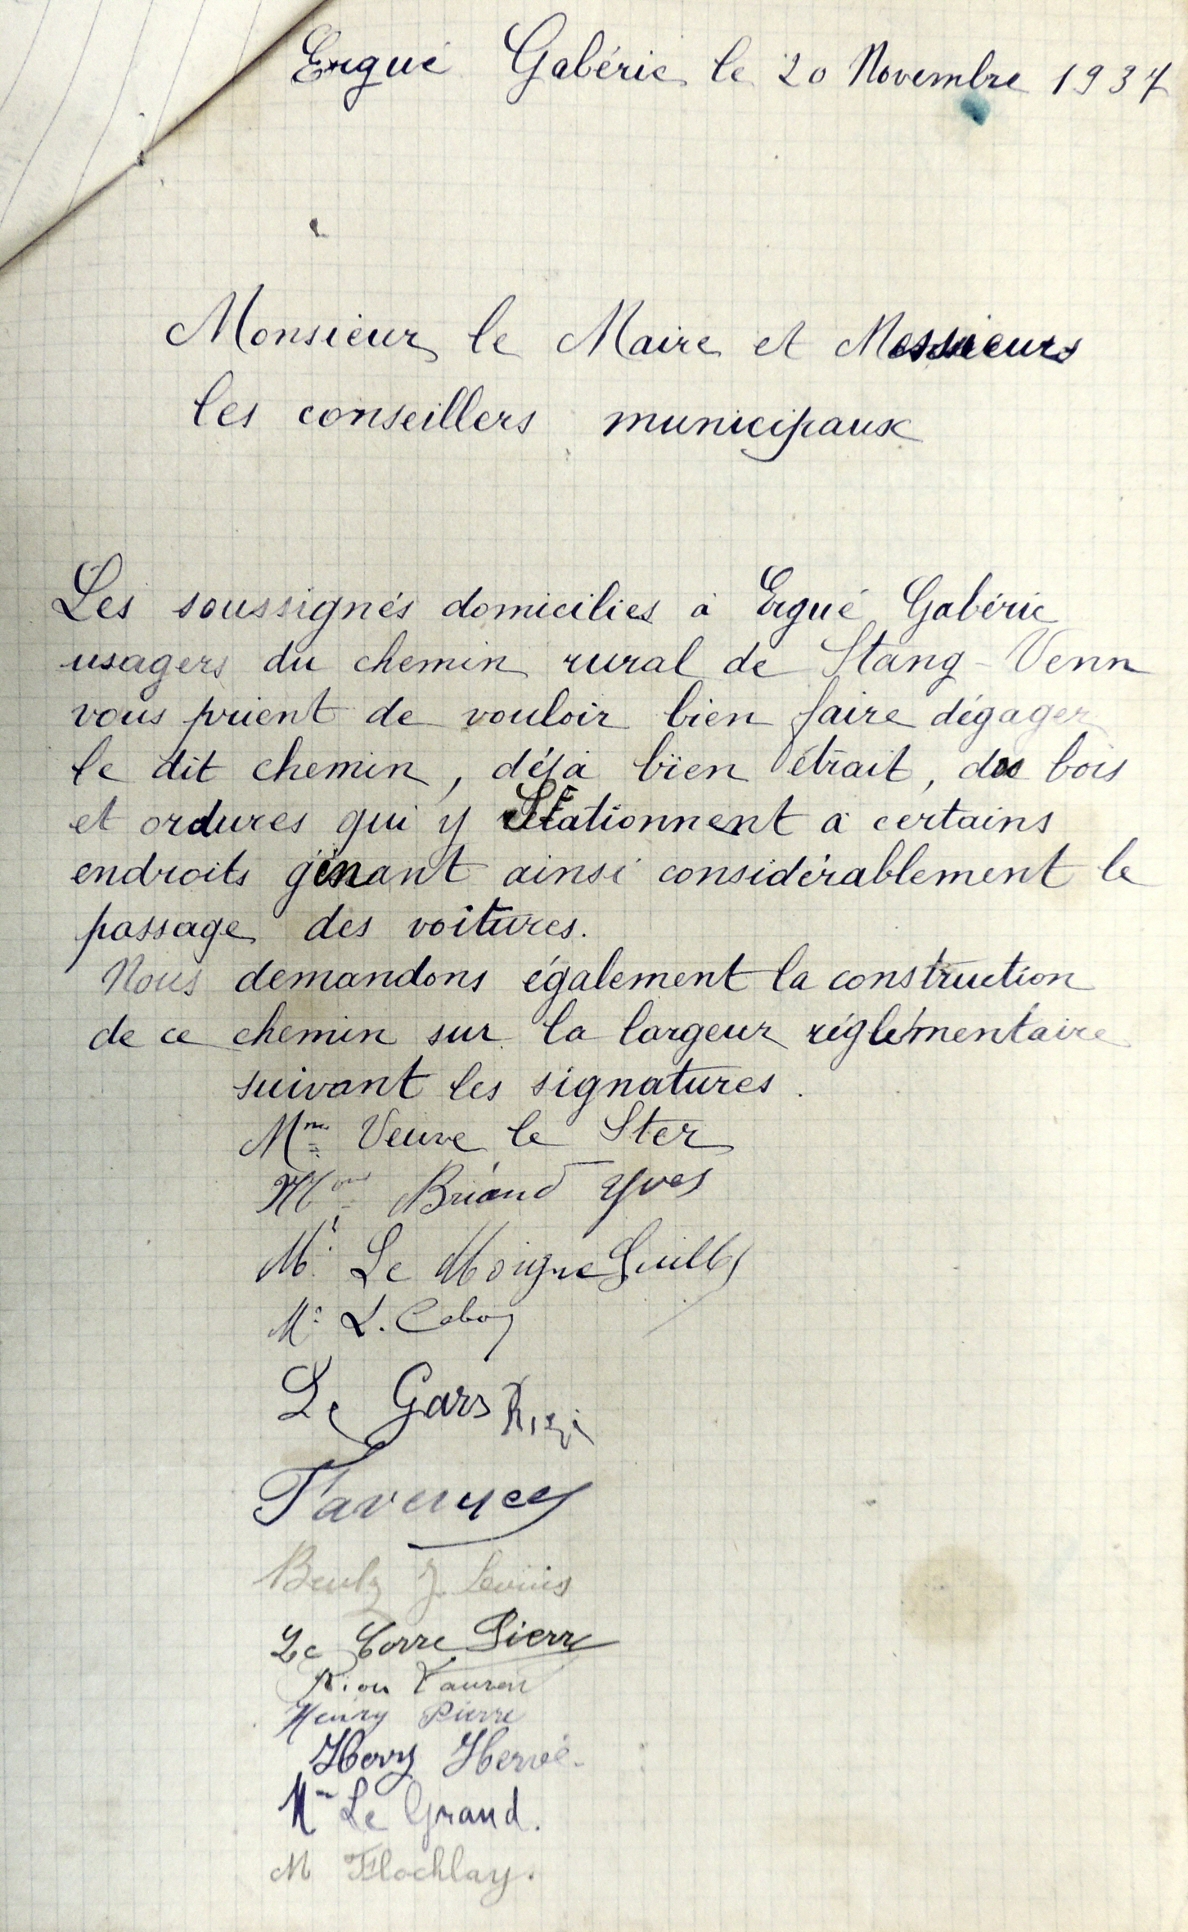 Ergué Gabéric le 20 Novembre 1937
Monsieur le Maire et Messieurs
les conseillers municipaux
Les soussignés domicilies à Ergué Gabéric
usagers du chemin rural de Stang-Venn
vous prient de vouloir bien faire dégager
le dit chemin, déjà bien étrait, du bois
et ordures qui y stationnent à certains
endroits gênant ainsi considérablement le
passage des voitures.
Nous demandons également la construction
de ce chemin sur la largeur réglémentaire
suivant les signatures.
Mme Veuve le Ster
Briand Yves
Mr Le Moigne
Mr L.
Le Gars
Le Corre Pierre
Riou Laurent
Henry Pierre
Hervé
Le Grand.
M Flochlay.